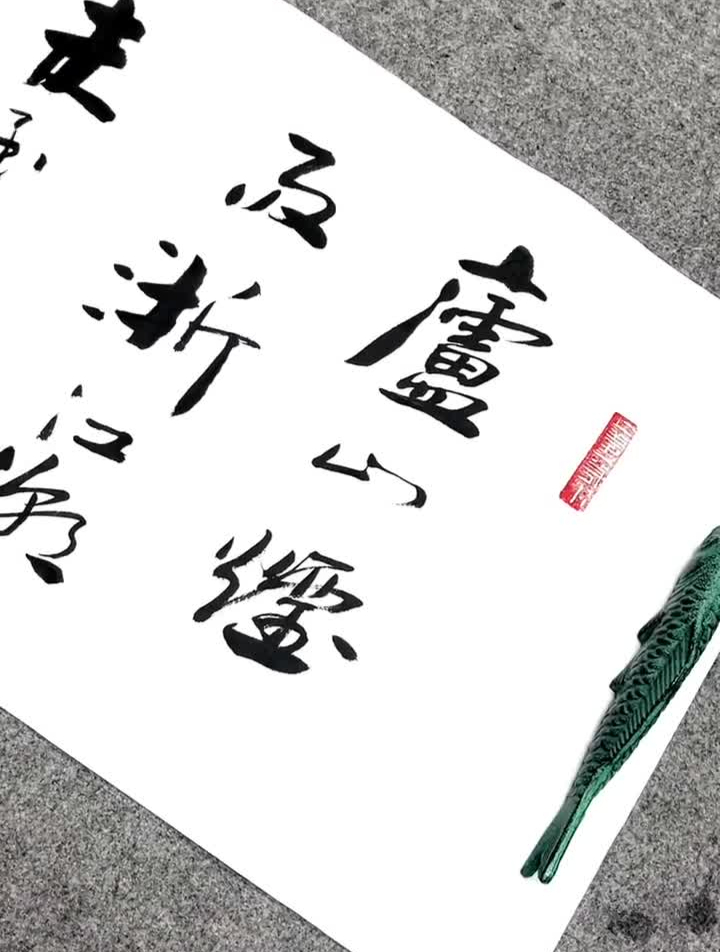 廬山煙
雨浙江潮
未